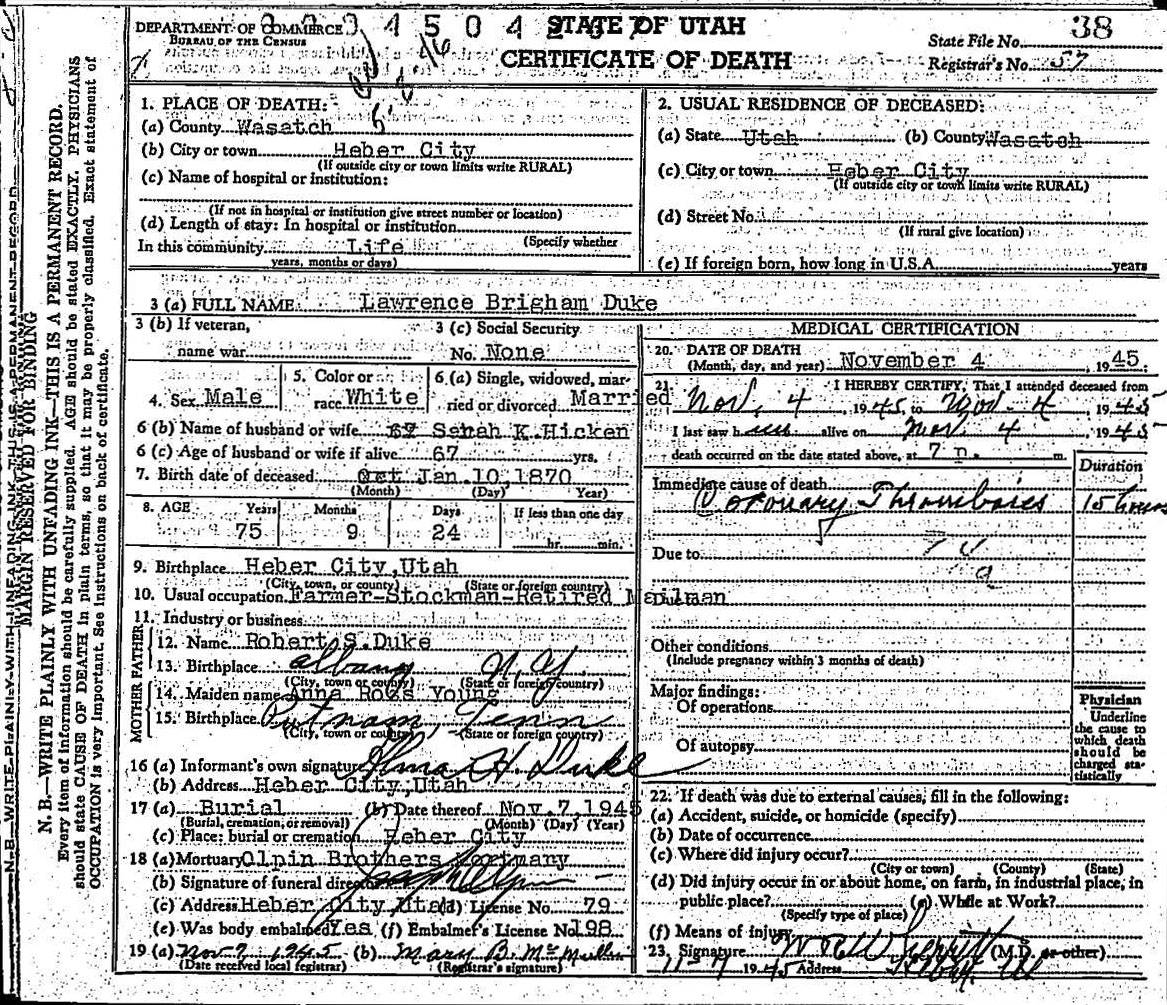 DEPARTMENT OF COMMERCE
BUREAU OF THE CENSUS
STATE OF UTAH
CERTIFICATE OF DEATH
State File No. 38
Registrar's No. 37
MARGIN RESERVED FOR BINDING
N. B.—WRITE PLAINLY WITH UNFADING INK—THIS IS A PERMANENT RECORD.
Every item of information should be carefully supplied. AGE should be stated EXACTLY. PHYSICIANS
should state CAUSE OF DEATH in plain terms, so that it may be properly classified. Exact statement of
OCCUPATION is very important. See instructions on back of certificate.
1. PLACE OF DEATH:
(a) County Wasatch
(b) City or town Heber City
(If outside city or town limits write RURAL)
(c) Name of hospital or institution:
(If not in hospital or institution give street number or location)
(d) Length of stay: In hospital or institution
(Specify whether
In this community Life
years, months or days)
2. USUAL RESIDENCE OF DECEASED:
(a) State Utah (b) County Wasatch
(c) City or town Heber City
(If outside city or town limits write RURAL)
(d) Street No.
(If rural give location)
(e) If foreign born, how long in U.S.A. years
3 (a) FULL NAME Lawrence Brigham Duke
3 (b) If veteran,
name war
3 (c) Social Security
No. None
4. Sex Male
5. Color or
race White
6. (a) Single, widowed, mar-
ried or divorced Married
6 (b) Name of husband or wife Serah K. Hicken
6 (c) Age of husband or wife if alive 67 yrs.
7. Birth date of deceased Oct Jan. 10, 1870
(Month) (Day) Year)
8. AGE Years Months Days If less than one day
75 9 24 hr. min.
9. Birthplace Heber City, Utah
(City, town, or county) (State or foreign country)
10. Usual occupation Farmer-Stockman-Retired Mailman
11. Industry or business
FATHER
12. Name Robert S. Duke
13. Birthplace Albany N.Y.
(City, town or county) (State or foreign country)
MOTHER
14. Maiden name Anna Young
15. Birthplace Putnam, Tenn
(City, town or county) (State or foreign country)
16 (a) Informant's own signature Alma H. Duke
(b) Address Heber City, Utah
17 (a) Burial (b) Date thereof Nov. 7, 1945
(Burial, cremation, or removal) (Month) (Day) (Year)
(c) Place: burial or cremation Heber City
18 (a) Mortuary Olpin Brothers Mortuary
(b) Signature of funeral director
(c) Address Heber City, Utah (d) License No. 79
(e) Was body embalmed Yes (f) Embalmer's License No. 198
19 (a) Nov 7 1945 (b) Mary B. McMullin
(Date received local registrar) (Registrar's signature)
MEDICAL CERTIFICATION
20. DATE OF DEATH
(Month, day, and year) November 4, 1945.
21. I HEREBY CERTIFY, That I attended deceased from
Nov. 4, 1945, to Nov. 4, 1945
I last saw him alive on Nov. 4, 1945
death occurred on the date stated above, at 7 p. m.
Duration
Immediate cause of death
Coronary Thrombosis 15 hours
Due to
Due to
Other conditions
(Include pregnancy within 3 months of death)
Major findings:
Of operations
Of autopsy
Physician
Underline
the cause to
which death
should be
charged sta-
tistically
22. If death was due to external causes, fill in the following:
(a) Accident, suicide, or homicide (specify)
(b) Date of occurrence
(c) Where did injury occur?
(City or town) (County) (State)
(d) Did injury occur in or about home, on farm, in industrial place, in
public place? (e) While at Work?
(Specify type of place)
(f) Means of injury
23. Signature (M.D. or other)
11-7 1945 Address